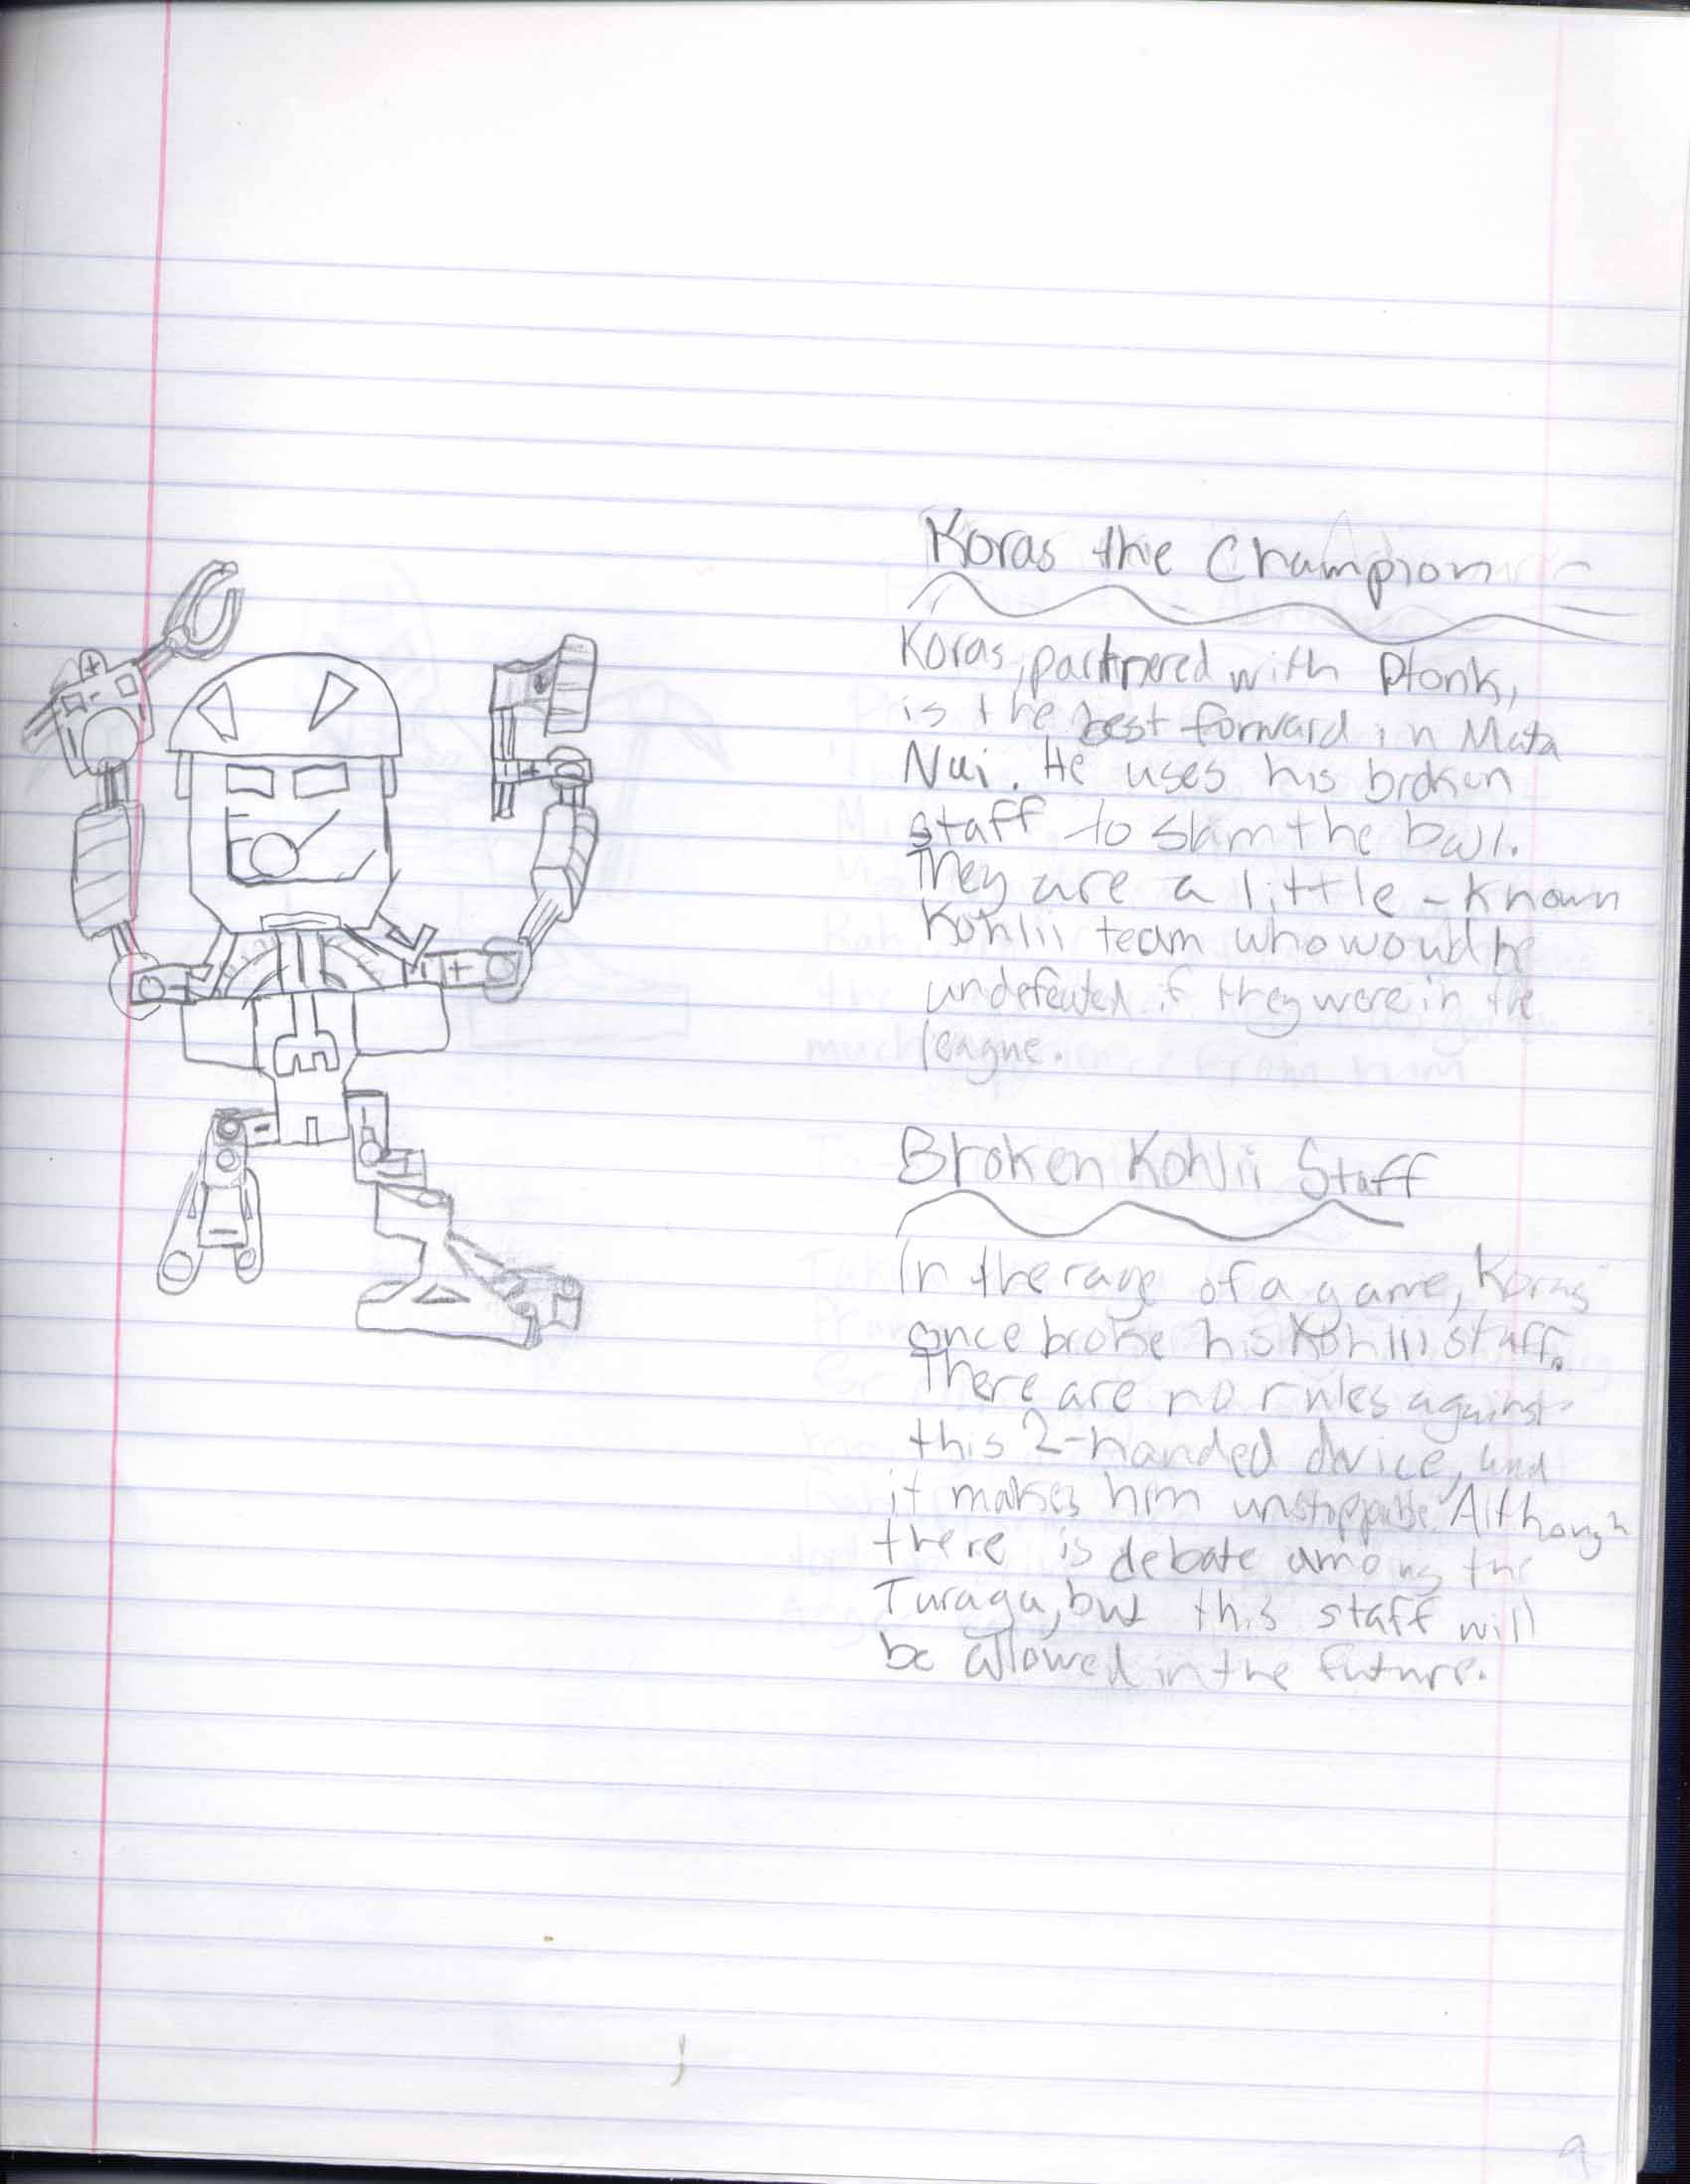 Koras the Champion
Koras, partnered with Ptonk,
is the best forward in Mata
Nui. He uses his broken
staff to slam the ball.
They are a little-known
Kohlii team who would be
undefeated if they were in the
league.
Broken Kohlii Staff
In the rage of a game, Koras
once broke his Kohlii staff.
There are no rules against
this 2-handed device, and
it makes him unstoppable. Although
there is debate among the
Turaga, but this staff will
be allowed in the future.
9